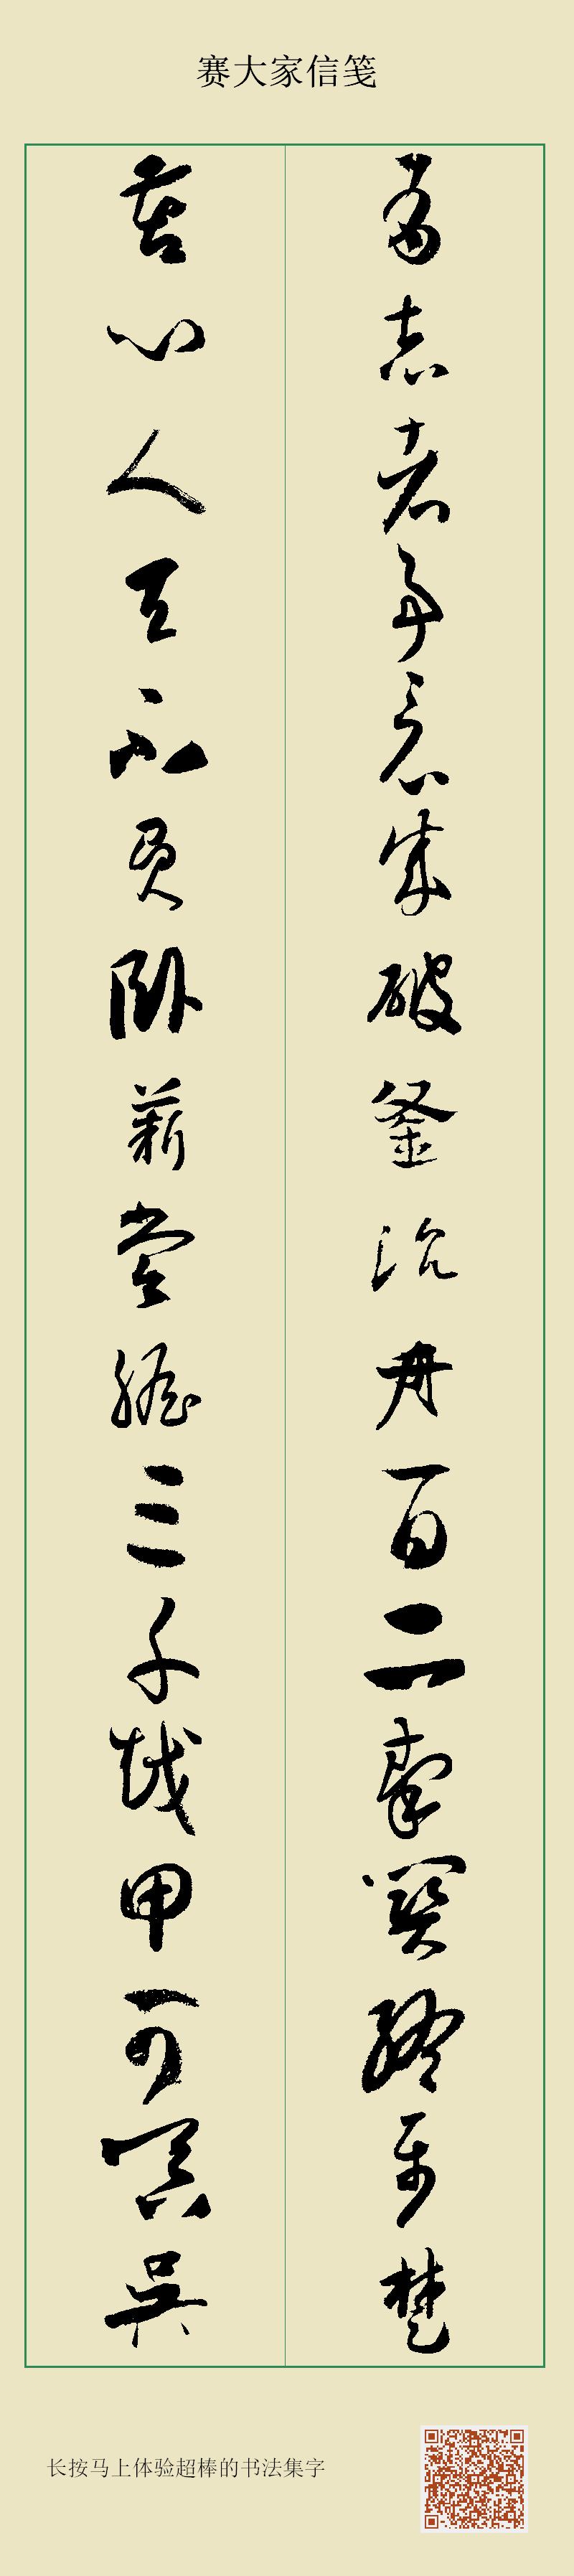 赛大家信笺
有志者事竟成破釜沉舟百二秦關終屬楚
苦心人天不負卧薪嘗膽三千越甲可吞吳
长按马上体验超棒的书法集字